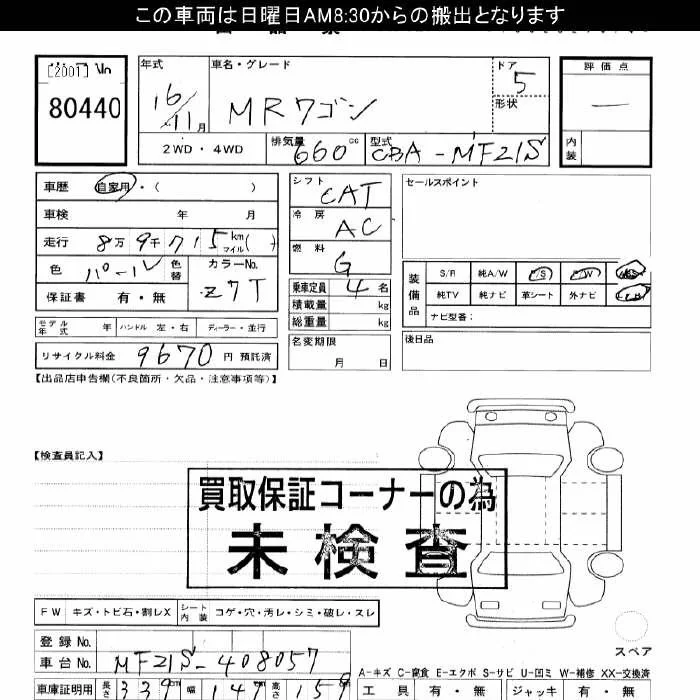 この車両は日曜日AM8:30からの搬出となります
[2001] No
80440
年式 車名・グレード ドア 評価点
16/11月 MRワゴン 5 —
形状
2WD・4WD 排気量 660cc 型式 CBA-MF21S 内装
車歴 自家用・( )
車検 年 月
走行 8万9千715km マイル( )
色 パール 色替 カラーNo. Z7T
保証書 有・無
シフト CAT
冷房 AC
燃料 G
乗車定員 4名
積載量 kg
総重量 kg
セールスポイント
装備品 S/R 純A/W P/S P/W
純TV 純ナビ 革シート 外ナビ
ナビ型番:
モデル年式 年 ハンドル 左・右 ディーラー・並行
名変期限 月 日
後日品
リサイクル料金 9670円 預託済
【出品店申告欄(不良箇所・欠品・注意事項等)】
【検査員記入】
買取保証コーナーの為
未検査
FW キズ・トビ石・割レX シート内装 コゲ・穴・汚レ・シミ・破レ・スレ
スペア
登録No.
車台No. MF21S-408057
A-キズ C-腐食 E-エクボ S-サビ U-凹ミ W-補修 XX-交換済
車庫証明用 長さ 339cm 幅 147 高さ 159
工具 有・無 ジャッキ 有・無